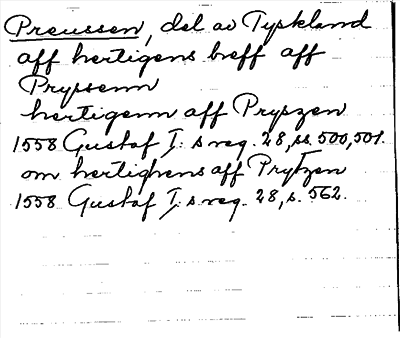 Preussen, del av Tyskland
aff hertigens breff aff
Pryssenn
hertigenn aff Pryszen
1558 Gustaf I:s reg. 28, ss. 500, 501.
om hertighens aff Prytzen
1558 Gustaf I:s reg. 28, s. 562.